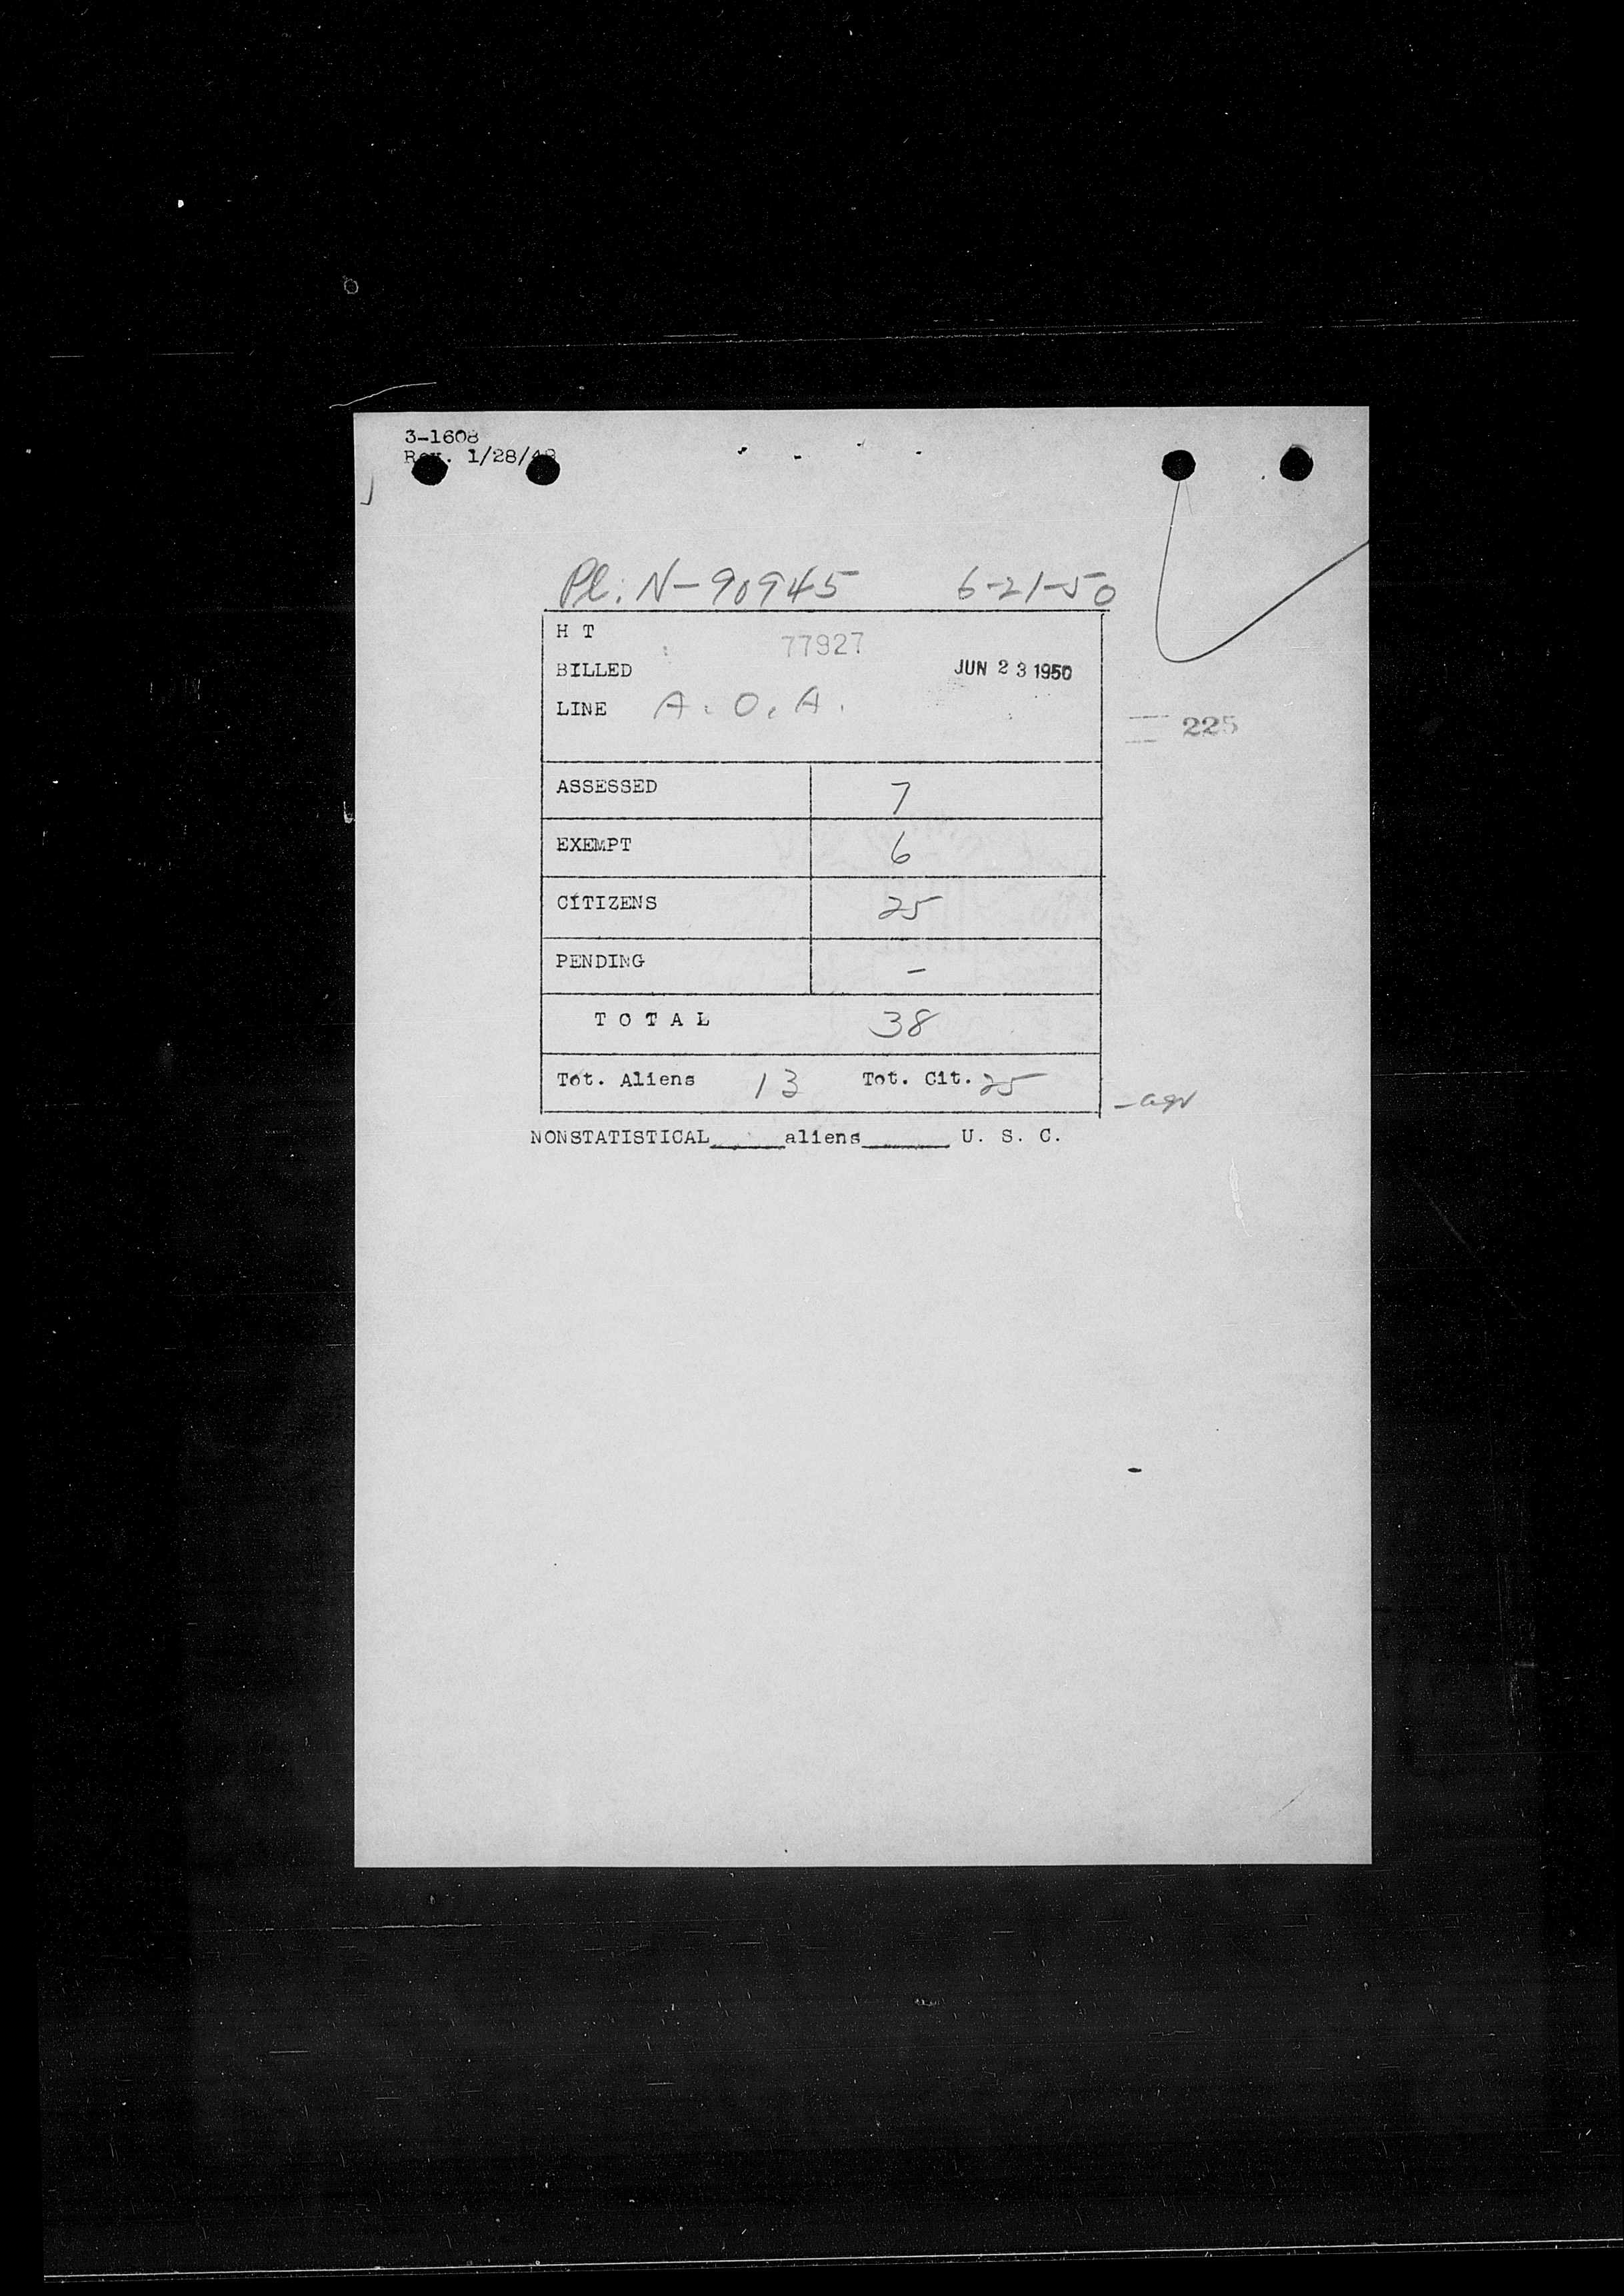 3-1608
Rev. 1/28/48
Pl. N-90945 6-21-50
H T 77927
BILLED JUN 23 1950
LINE A. O. A.
225
ASSESSED 7
EXEMPT 6
CITIZENS 25
PENDING -
T O T A L 38
Tot. Aliens 13 Tot. Cit. 25
NONSTATISTICAL______aliens_______ U. S. C.